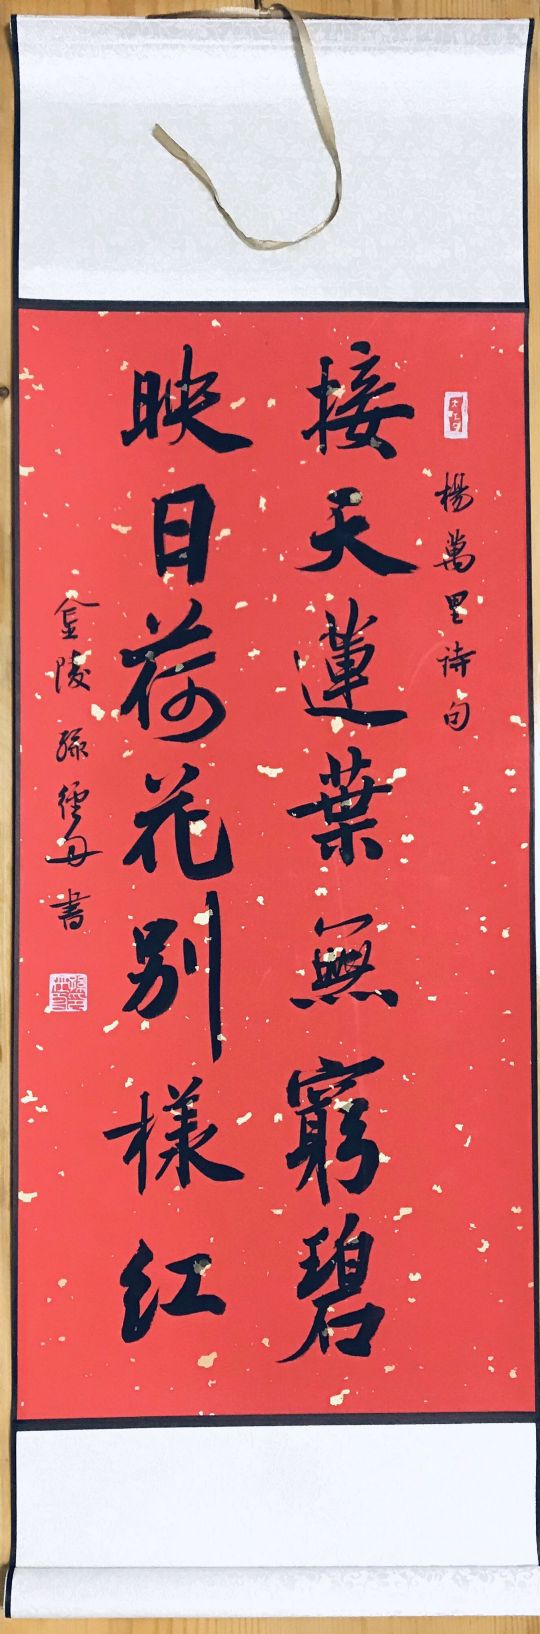 楊萬里詩句
接天蓮葉無窮碧
映日荷花別樣紅
金陵孫經丹書